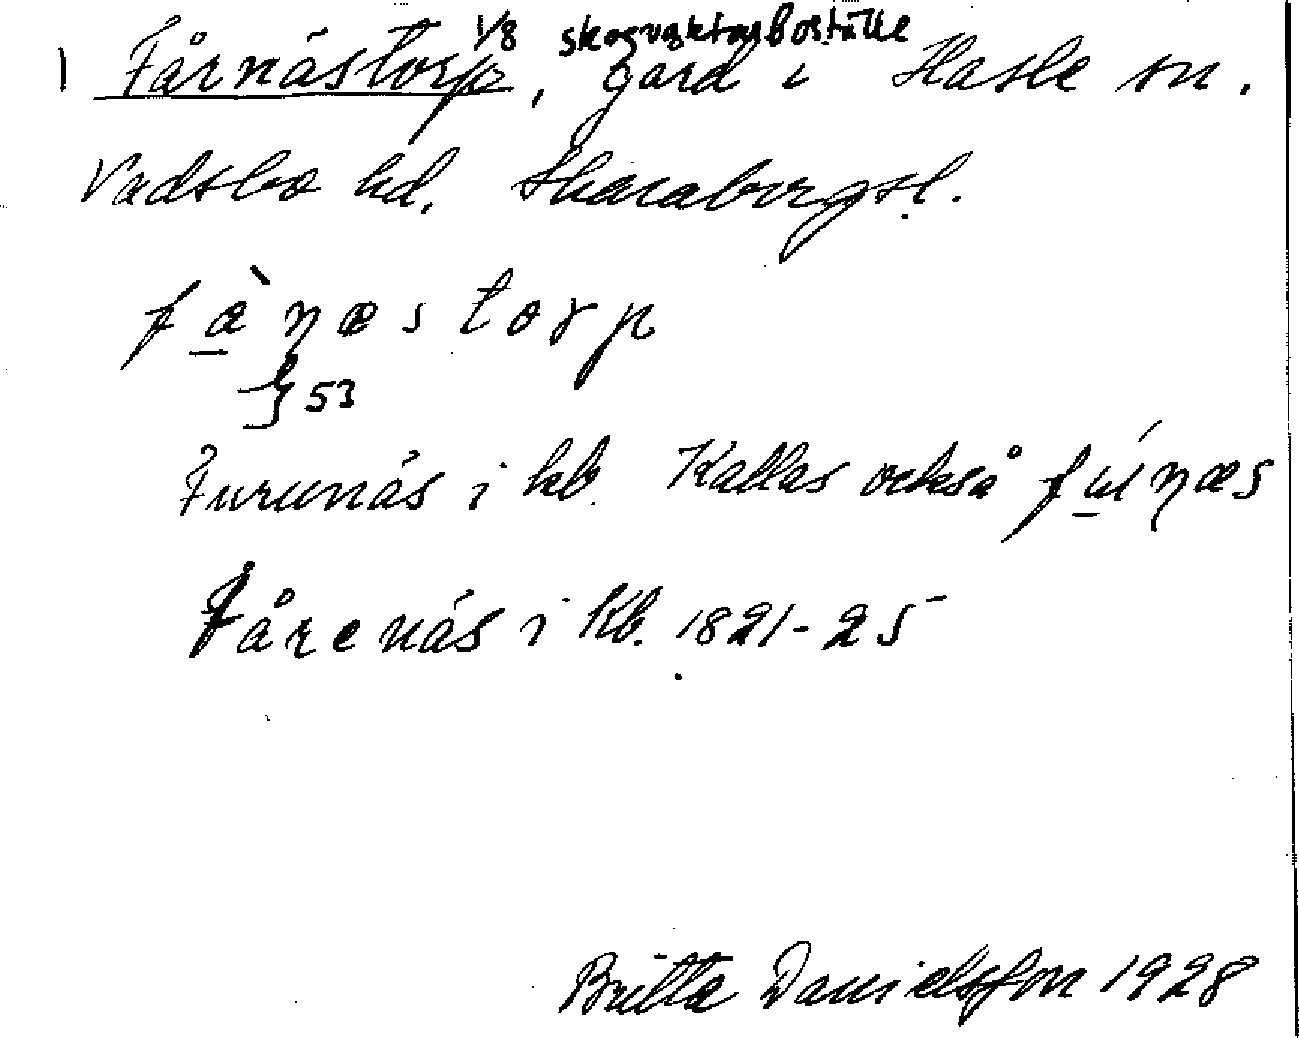 1/8 skogvaktarboställe
1 Fårnästorp, gård i Hasle sn.
Vadsbo hd. Skaraborgsl.
fànæstorp
} 53
Furunäs i kb. Kallas också fúnæs
Fårenäs i kb. 1821-25
Britta Danielsson 1928